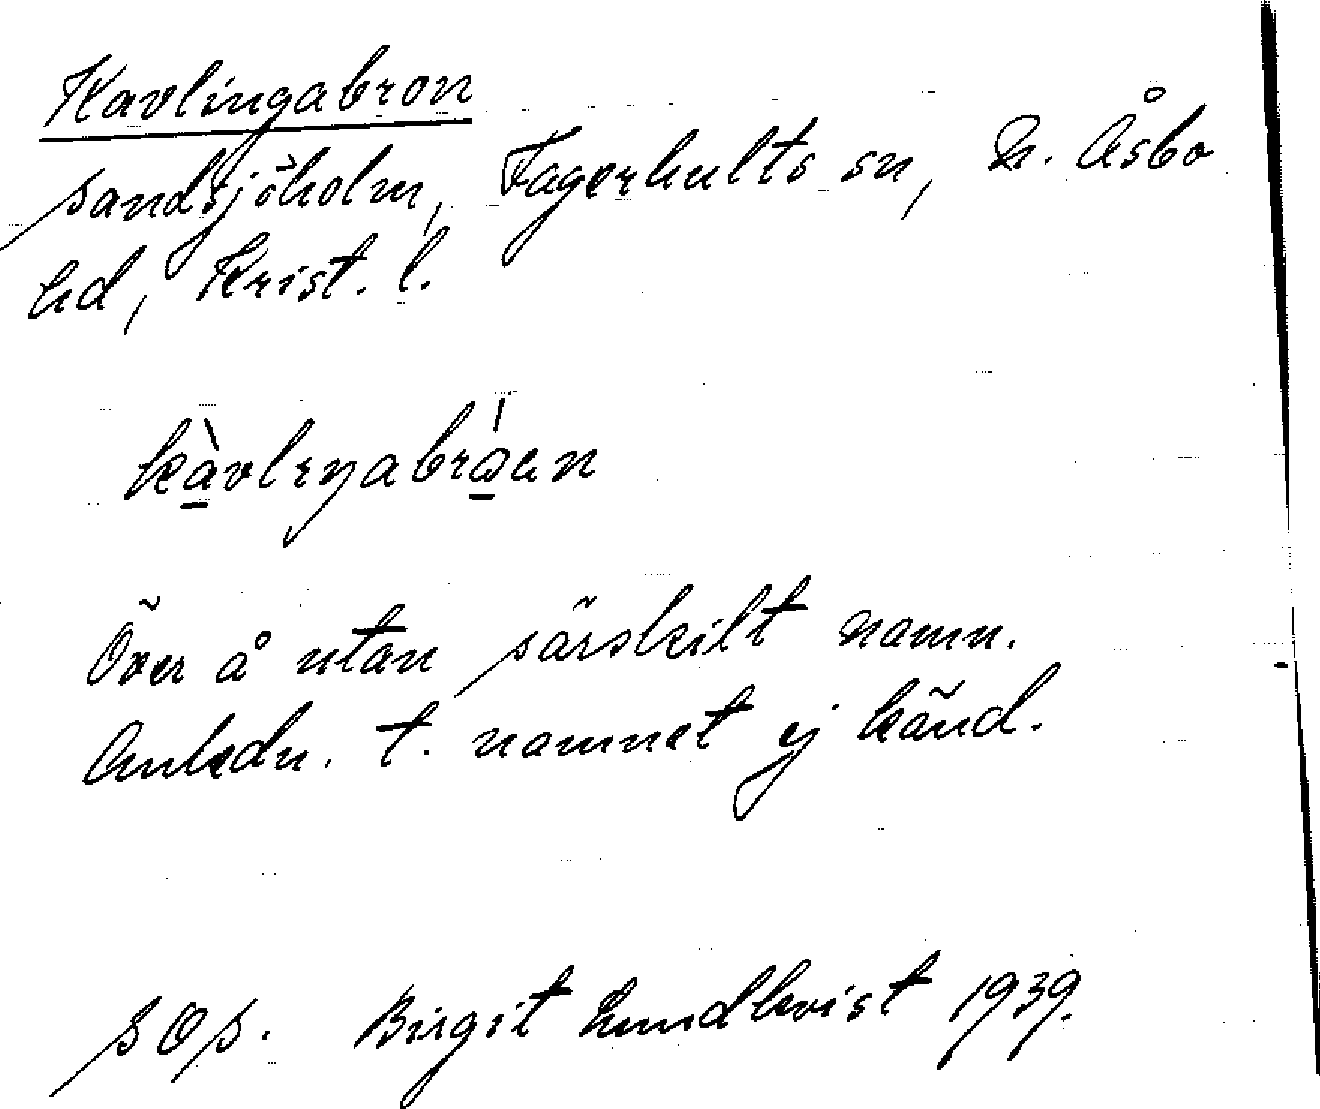 Kavlingabron
Sandsjöholm, Fagerhults sn, N. Åsbo
hd, Krist. l.
kàvlıŋabráen
Över å utan särskilt namn.
Anledn. t. namnet ej känd.
SOS. Birgit Lundkvist 1939.